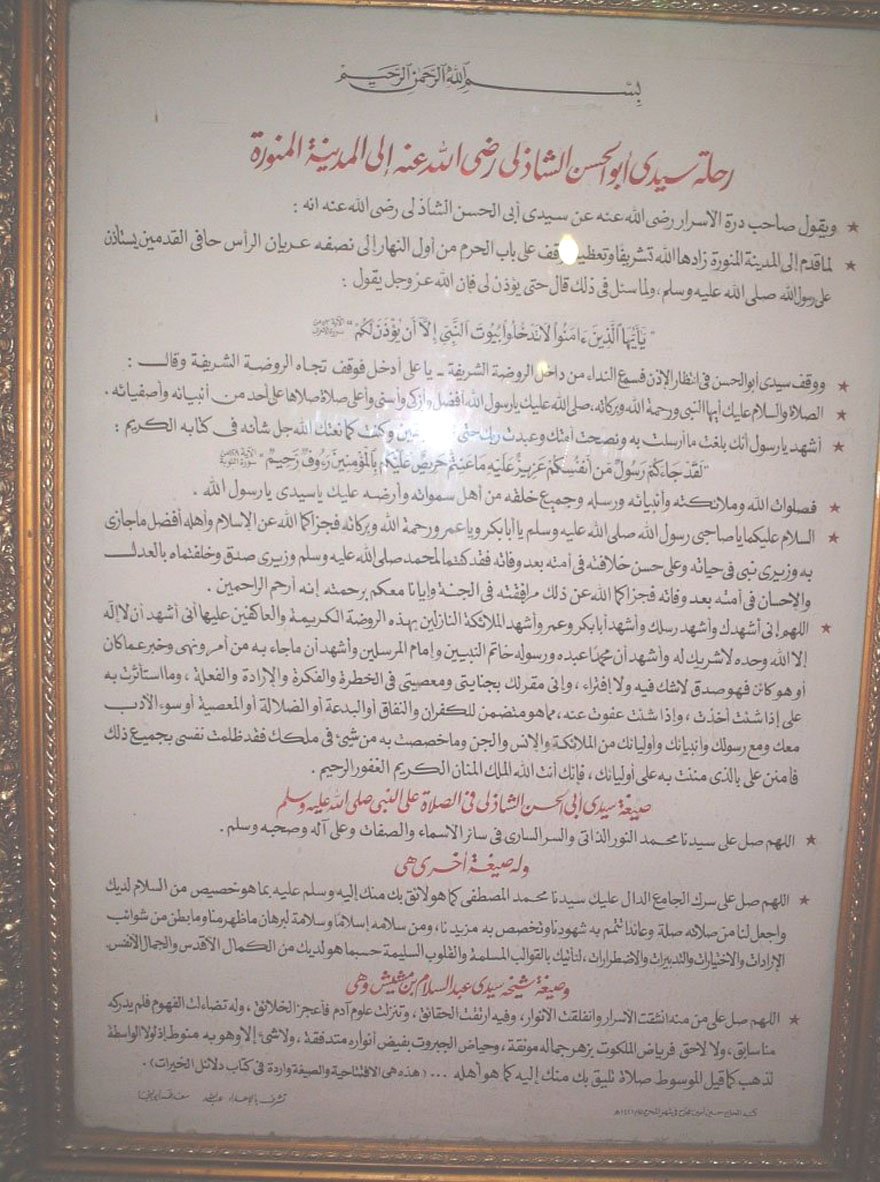 بسم الله الرحمن الرحيم
رحلة سيدى أبو الحسن الشاذلى رضى الله عنه إلى المدينة المنورة
★ ويقول صاحب درة الاسرار رضى الله عنه عن سيدى أبى الحسن الشاذلى رضى الله عنه انه :
★ لما قدم إلى المدينة المنورة زادها الله تشريفًا وتعظيمًا وقف على باب الحرم من أول النهار إلى نصفه عريان الرأس حافى القدمين يستأذن
على رسول الله صلى الله عليه وسلم، ولما سئل فى ذلك قال حتى يؤذن لى فإن الله عز وجل يقول :
" يَأَيُّهَا الَّذِينَ ءَامَنُوا لَا تَدْخُلُوا بُيُوتَ النَّبِيِّ إِلَّا أَن يُؤْذَنَ لَكُمْ "
★ ووقف سيدى أبو الحسن فى انتظار الإذن فسمع النداء من داخل الروضة الشريفة ـ يا على أدخل فوقف تجاه الروضة الشريفة وقال :
★ الصلاة والسلام عليك أيها النبى ورحمة الله وبركاته، صلى الله عليك يا رسول الله أفضل وأزكى وأسنى وأعلى صلاة صلاها على أحد من أنبيائه وأصفيائه .
★ أشهد يا رسول أنك بلغت ما أرسلت به ونصحت أمتك وعبدت ربك حتى وكنت كما نعتك الله جل شأنه فى كتابه الكريم :
"لَقَدْ جَاءَكُمْ رَسُولٌ مِّنْ أَنفُسِكُمْ عَزِيزٌ عَلَيْهِ مَا عَنِتُّمْ حَرِيصٌ عَلَيْكُم بِالْمُؤْمِنِينَ رَءُوفٌ رَّحِيمٌ " سورة التوبة
★ فصلوات الله وملائكته وأنبيائه ورسله وجميع خلقه من أهل سمواته وأرضه عليك يا سيدى يا رسول الله .
★ السلام عليكما يا صاحبى رسول الله صلى الله عليه وسلم يا أبا بكر ويا عمر ورحمة الله وبركاته فجزاكما الله عن الإسلام وأهله أفضل ما جازى
به وزيرى نبى فى حياته وعلى حسن خلافته فى أمته بعد وفاته فقد كنتما لمحمد صلى الله عليه وسلم وزيرى صدق وخلفتماه بالعدل
والإحسان فى أمته بعد وفاته فجزاكما الله عن ذلك مرافقته فى الجنة وإيانا معكم برحمته إنه أرحم الراحمين .
★ اللهم إنى أشهدك وأشهد رسلك وأشهد أبا بكر وعمر وأشهد الملائكة النازلين بهذه الروضة الكريمة والعاكفين عليها أنى أشهد أن لا إله
إلا الله وحده لا شريك له وأشهد أن محمدًا عبده ورسوله خاتم النبيين وإمام المرسلين وأشهد أن ما جاء به من أمر ونهى وخبر عما كان
أو هو كائن فهو صدق لا شك فيه ولا إفتراء ، وإنى مقر لك بجنايتى ومعصيتى فى الخطرة والفكرة والإرادة والفعلة ، وما استأثرت به
على إذا شئت أخذت ، وإذا شئت عفوت عنه، مما هو متضمن للكفران والنفاق أو البدعة أو الضلالة أو المعصية أو سوء الأدب
معك ومع رسولك وأنبيائك وأوليائك من الملائكة والإنس والجن وما خصصت به من شئ فى ملكك فقد ظلمت نفسى بجميع ذلك
فامنن على بالذى مننت به على أوليائك ، فإنك أنت الله الملك المنان الكريم الغفور الرحيم .
صيغة سيدى أبى الحسن الشاذلى فى الصلاة على النبى صلى الله عليه وسلم
★ اللهم صل على سيدنا محمد النور الذاتى والسر السارى فى سائر الاسماء والصفات وعلى آله وصحبه وسلم .
وله صيغة أخرى هى
★ اللهم صل على سرك الجامع الدال عليك سيدنا محمد المصطفى كما هو لائق بك منك إليه وسلم عليه بما هو خصيص من السلام لديك
واجعل لنا من صلاته صلة وعائدًا تتم به شهودنا وتخصص به مزيدنا ، ومن سلامه إسلامًا وسلامة لبرهان ما ظهر منا وما بطن من شوائب
الإرادات والاختيارات والتدبيرات والاضطرارات، لنأتيك بالقوالب المسلمة والقلوب السليمة حسبما هو لديك من الكمال الأقدس والجمال الأنفس.
وصيغة شيخه سيدى عبد السلام بن مشيش وهى
★ اللهم صل على من منه انشقت الاسرار وانفلقت الانوار ، وفيه ارتقت الحقائق ، وتنزلت علوم آدم فأعجز الخلائق ، وله تضاءلت الفهوم فلم يدركه
منا سابق ، ولا لاحق فرياض الملكوت بزهر جماله مونقة ، وحياض الجبروت بفيض أنواره متدفقة ، ولا شئ إلا وهو به منوط إذ لولا الواسطة
لذهب كما قيل الموسوط صلاة تليق بك منك إليه كما هو أهله ... ( هذه هى الافتتاحية والصيغة واردة فى كتاب دلائل الخيرات ) .